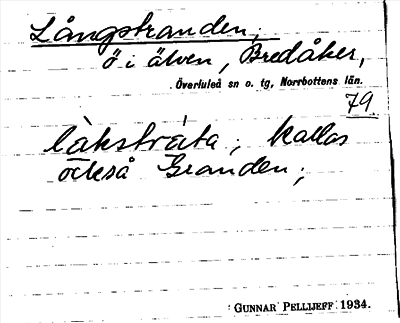 Långstranden;
ö i älven, Bredåker,
Överluleå sn o. tg, Norrbottens län.
79.
låkstráta; kallas
också Granden;
GUNNAR PELLIJEFF 1934.